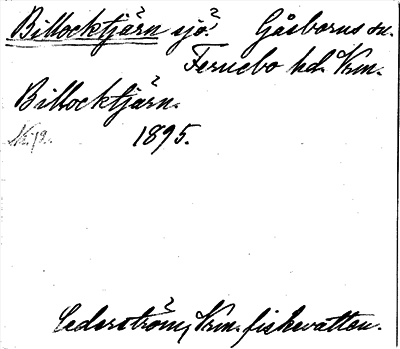 Billocktjärn sjö? Gåsborns sn.
Fernebo hd. Vrm.
Billocktjärn.
1895.
Cederström, Vrm. fiskevatten.